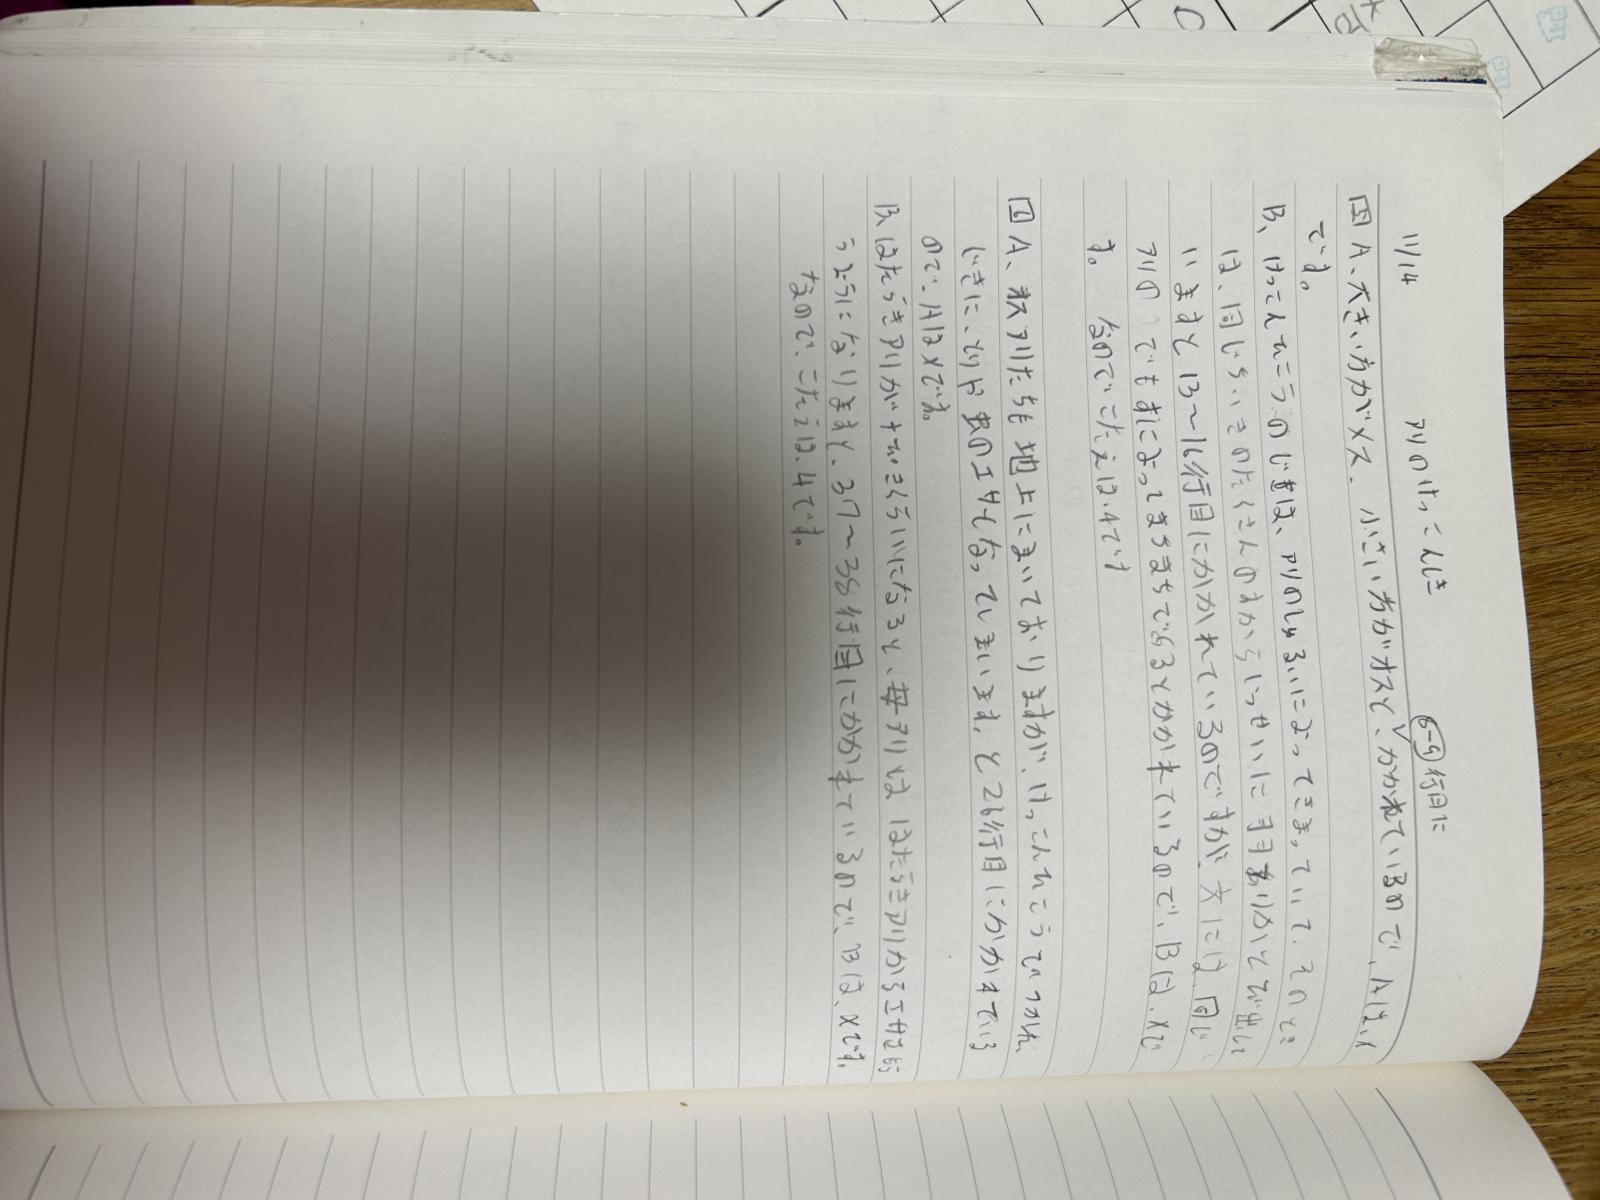 11/14 アリのけっこんしき
6-9行目に
五 A、大きい方がメス、小さい方がオスと、かかれているので、Aは、×
です。
B、けっこんひこうのじきは、アリのしゅるいによってきまっていて、そのとき
は、同じらいさのたくさんのすからいっせいに羽ありがとび出して
いますと13〜16行目にかかれているのですが、文には、同じ
アリの でもすによってまちまちであるとかかれているので、Bは、×で
す。 なのでこたえは、4です
六 A、オスアリたちも地上にまいておりますが、けっこんひこうでつかれ、
じきに、とりや虫のエサとなってしまいます。と26行目にかかれている
ので、Aは×です。
B、はたらきアリが十ぴきくらいになると、母アリは はたらきアリからエサをもら
うようになりますと、37〜38行目にかかれているので、Bは、×です。
なので、こたえは、4です。